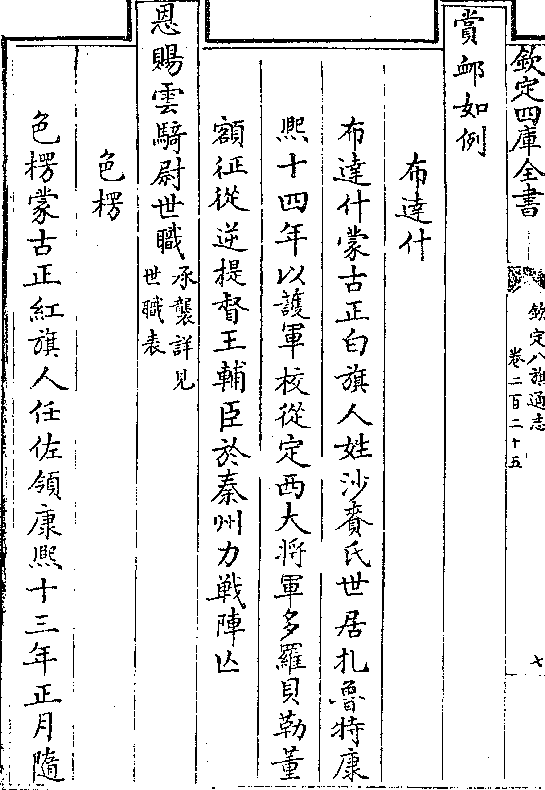 欽定四庫全書
欽定八旗通志
卷二百二十五
七
賞䘏如例
布達什
布達什蒙古正白旗人姓沙賚氏世居扎魯特康
熙十四年以護軍校從定西大將軍多羅貝勒董
額征從逆提督王輔臣於秦州力戰陣亡
恩賜雲騎尉世職承襲詳見
世職表
色楞
色楞蒙古正紅旗人任佐領康熙十三年正月隨